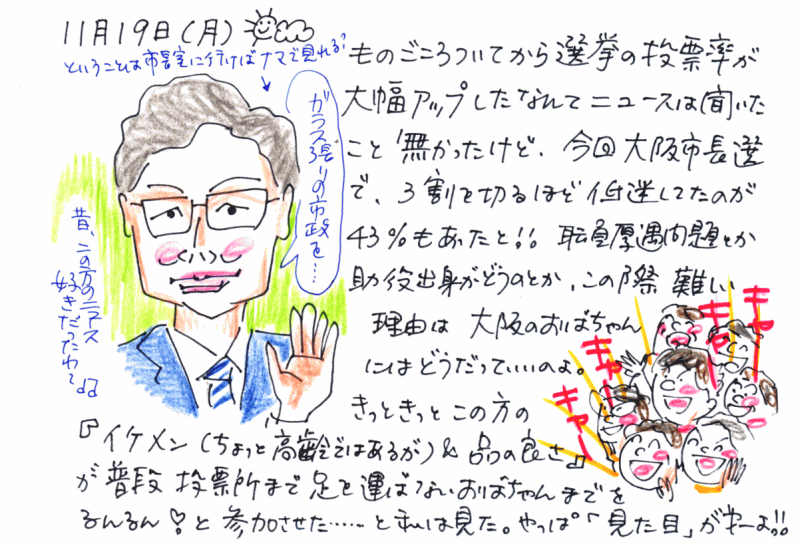 11月19日(月)
ということは市長室に行けばナマで見れる?
ガラス張りの市政を…
昔、この方のニュース
好きだったわ
ものごころついてから選挙の投票率が
大幅アップしたなんてニュースは聞いた
こと無かったけど、今回大阪市長選
で、3割を切るほど低迷してたのが
43%もあったと!!職員厚遇問題とか
助役出身がどうのとか、この際難しい
理由は大阪のおばちゃん
にはどうだっていいのよ。
きっときっとこの方の
『イケメン(ちょっと高齢ではあるが)&品の良さ』
が普段投票所まで足を運ばないおばちゃんまでを
るんるん♡と参加させた……と私は見た。やっぱ「見た目」がキーよ!!
キャー
キャー
キャー
キャー